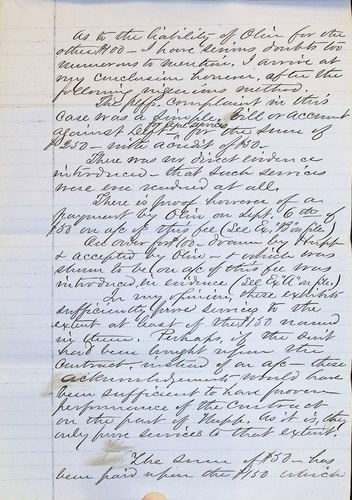 As to the liability of Olin for the
other $100 - I have serious doubts too
numerous to mention. I arrive at
my conclusion however, after the
following ingenious method.
The plffs. complaint in this
case was a simple bill or account
against Deft for legal services for the sum of
$250 - with a credit of $50 -
There was no direct evidence
introduced - that such services
were ever rendered at all.
There is proof however of a
payment by Olin on Sept. 6th of
$50 on a/c of this fee (See Ex. "B" on file.)
An order for $100 - drawn by Hupp
& accepted by Olin - & which was
shown to be on a/c of this fee was
introduced in evidence (See Ex "A" on file.)
In my opinion, these exhibits
sufficiently prove services to the
extent at least of the $150 named
in them. Perhaps, if the suit
had been brought upon the
contract, instead of an a/c - these
acknowledgments would have
been sufficient to have proven
performance of the contract
on the part of Hupp. As it is, they
only prove services to that extent.
The sum of $50 - has
been paid upon the $150 which